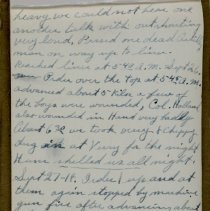 heavy we could not hear one
another talk with out hollering
very loud, Passed one dead
man on way up to line.
Reached lines at 5 A.M. Sept 26
Order over the top at 5:45 A.M.
advanced about 5 Kilo a few of
the boys were wounded, Col.
also wounded in Hand very badly
about 6 we took
dug in at Very for the night
Huns shelled us all night.
Sept 27-18, Order up and at
them again stopped by machine
gun fire after advancing about